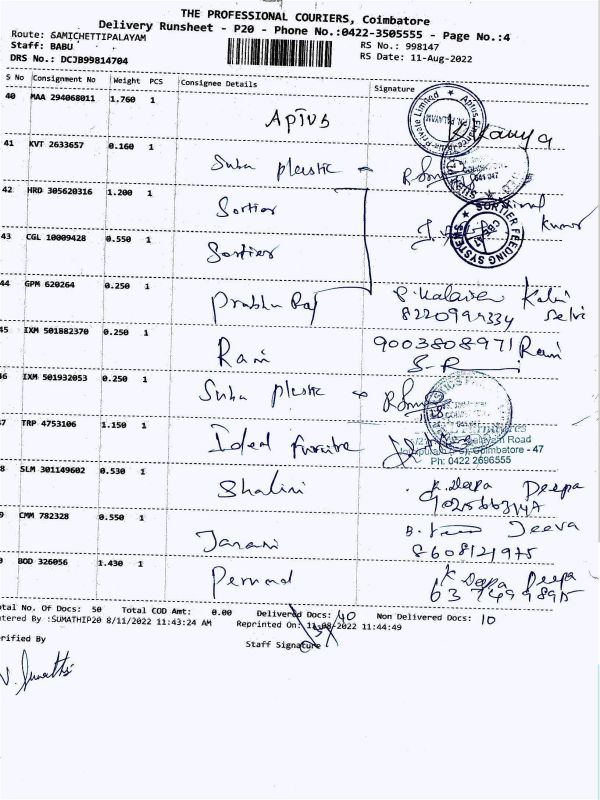 THE PROFESSIONAL COURIERS, Coimbatore
Delivery Runsheet - P20 - Phone No.:0422-3505555 - Page No.:4
Route: SAMICHETTIPALAYAM
Staff: BABU
RS No.: 998147
DRS No.: DCJB99814704
RS Date: 11-Aug-2022
S No Consignment No Weight PCS Consignee Details Signature
40 MAA 294068011 1.760 1 Aptus K. Kavya
41 KVT 2633657 0.160 1 Suba plastic
42 HRD 305620316 1.200 1 Sortier Kumar
SORTIER FEEDING SYSTEMS
43 CGL 10009428 0.550 1 Sortier
44 GPM 620264 0.250 1 Prabhu Raj Kalai Selvi
8220999334
45 IXM 501882370 0.250 1 Rani 9003808971 Rani
46 IXM 501932053 0.250 1 Suba plastic
7 TRP 4753106 1.150 1 Ideal furnitre
Road
Coimbatore - 47
Ph: 0422 2696555
8 SLM 301149602 0.530 1 Shalini K. Deepa Deepa
9 CMM 782328 0.550 1 Janani Jeeva
8608121975
BOD 326056 1.430 1 K Deepa Deepa
otal No. Of Docs: 50 Total COD Amt: 0.00 Delivered Docs: 40 Non Delivered Docs: 10
tered By :SUMATHIP20 8/11/2022 11:43:24 AM Reprinted On: 11-08-2022 11:44:49
erified By Staff Signature
V. Sumathi